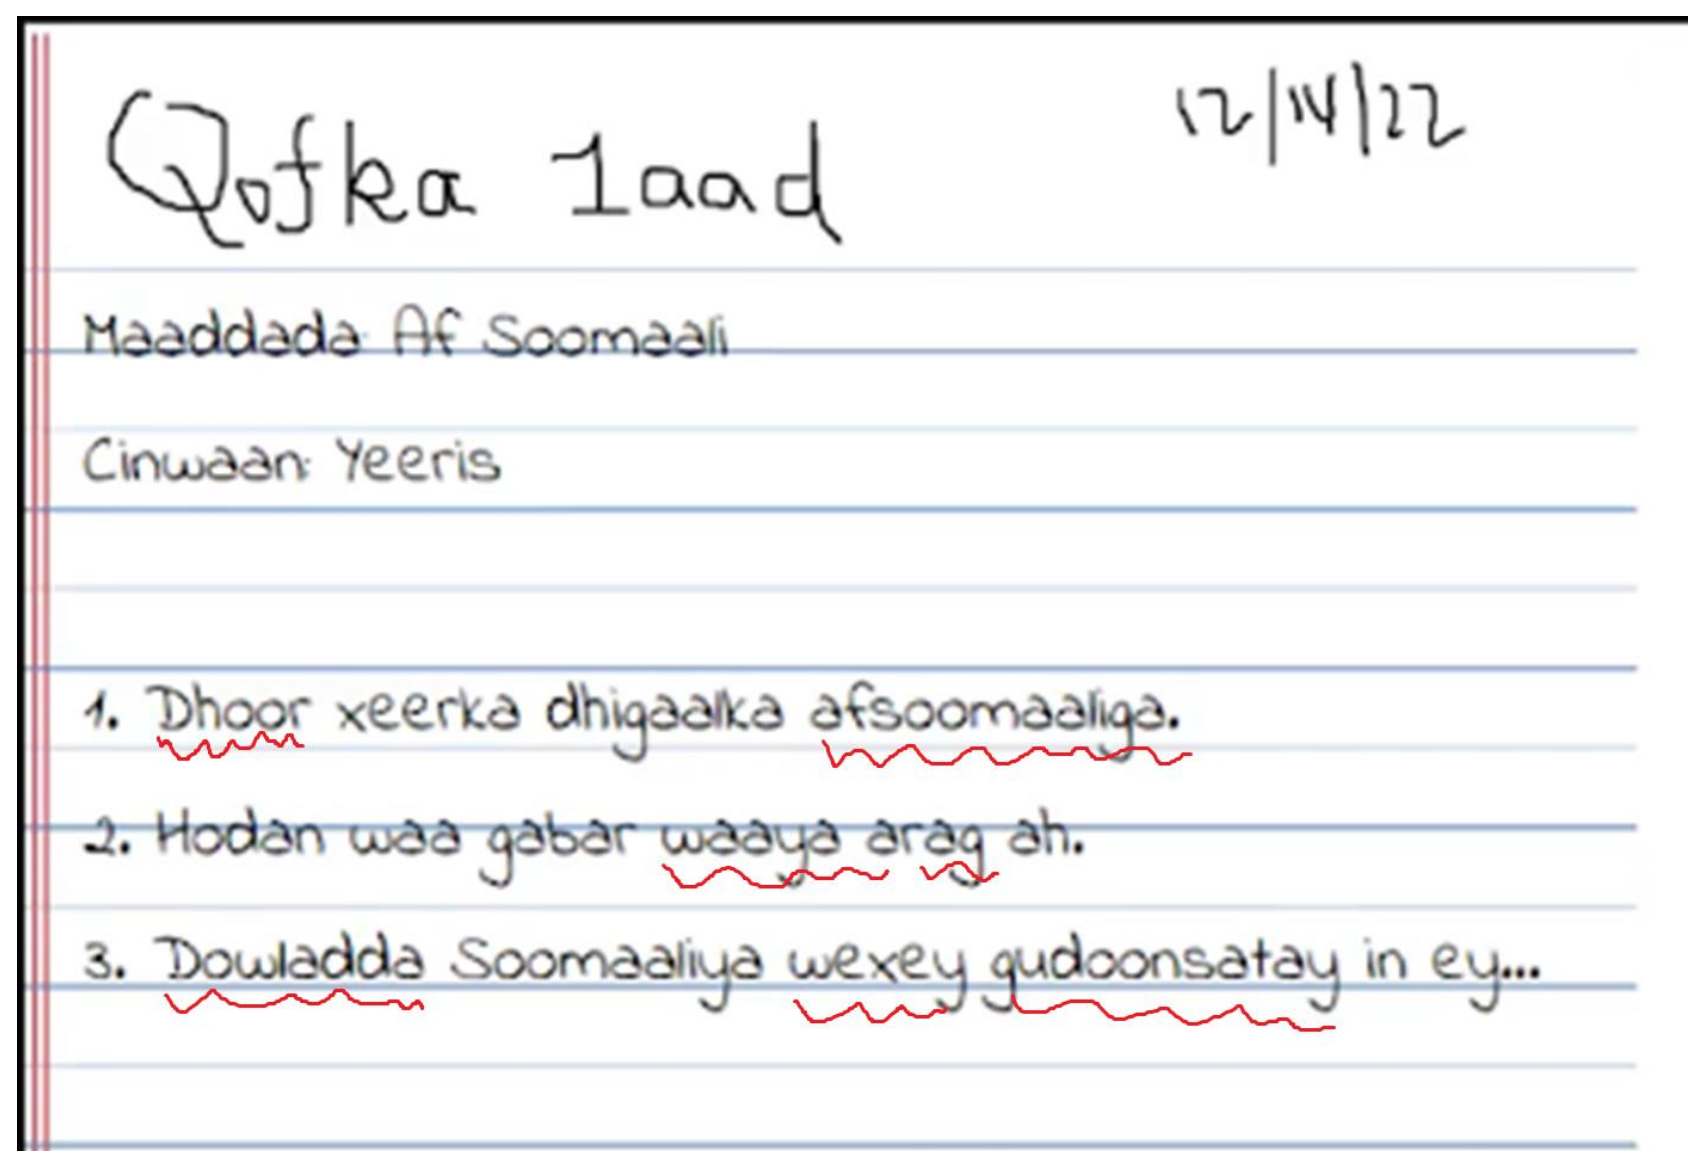 Qofka 1aad 12/14/22
Maaddada: Af Soomaali
Cinwaan: Yeeris
1. Dhoor xeerka dhigaalka afsoomaaliga.
2. Hodan waa gabar waaya arag ah.
3. Dowladda Soomaaliya wexey gudoonsatay in ey...